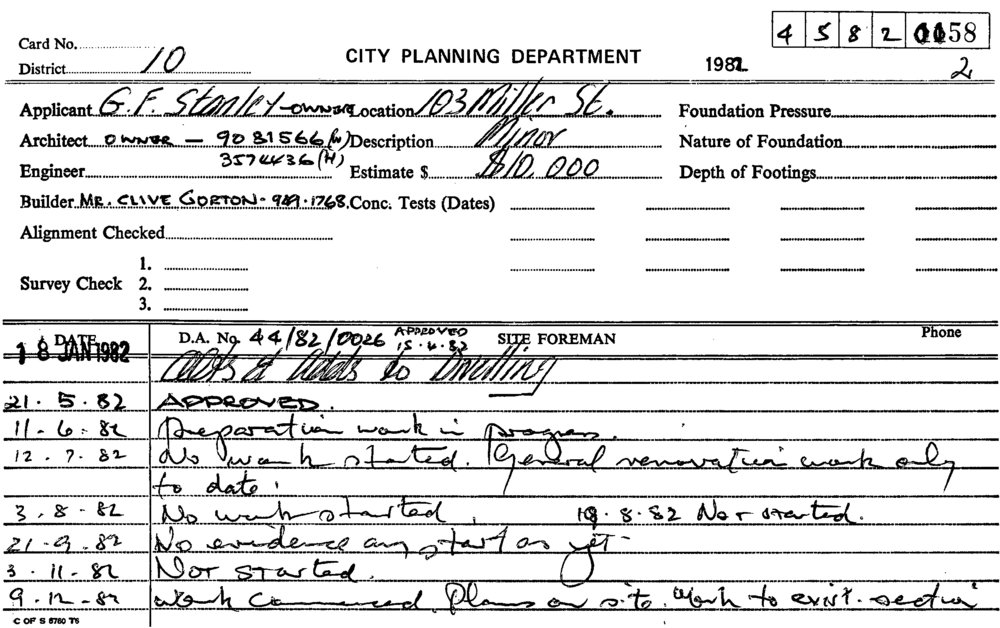 4 5 8 2 0158
Card No.
District 10 CITY PLANNING DEPARTMENT 1982 2
Applicant G. F. Stanley - OWNER Location 103 Miller St. Foundation Pressure
Architect OWNER - 9081566 (W) Description Minor Nature of Foundation
3574436 (H)
Engineer Estimate $ $10,000 Depth of Footings
Builder MR. CLIVE GORTON - 949.1768. Conc. Tests (Dates)
Alignment Checked
1.
Survey Check 2.
3.
DATE D.A. No. 44/82/0026 APPROVED 15.4.82 SITE FOREMAN Phone
18 JAN 1982 Alts & Adds to Dwelling
21.5.82 APPROVED.
11-6-82 Preparation work in progress.
12.7.82 No work started. General renovation work only
to date.
3.8.82 No work started. 18.8.82 Not started.
21-9.82 No evidence any start as yet
3.11-82 NOT STARTED.
9.12-82 Work commenced. Plans on site. Work to exist. section
C OF S 6760 T6